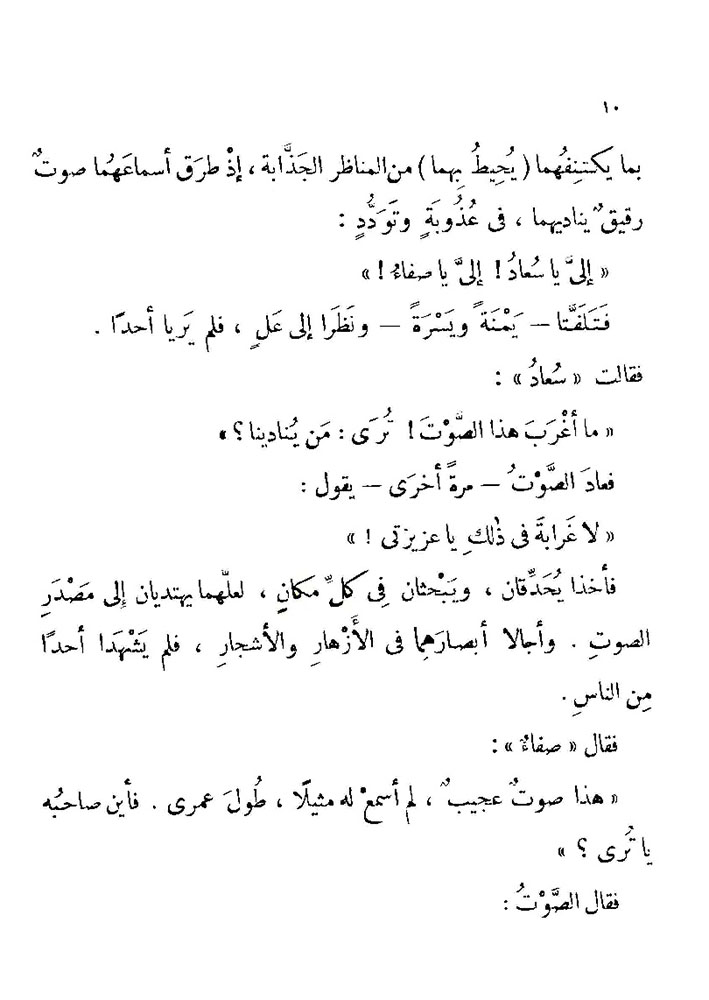 ١٠
بما يكتنِفُهما ( يُحِيطُ بِهما ) من المناظر الجَذَّابة ، إذْ طرَق أسماعَهُما صوتٌ
رقيقٌ يناديهما ، فى عُذُوبَةٍ وتَوَدُّدٍ :
« إلىَّ يا سُعادُ ! إلىَّ يا صفاءُ ! »
فَتَلَفَّتا — يَمْنَةً ويَسْرَةً — ونَظَرا إلى عَلٍ ، فلم يَريا أحدًا .
فقالت « سُعادُ » :
« ما أغْرَبَ هذا الصَّوْتَ ! تُرَى : مَن يُنادينا ؟ »
فعادَ الصَّوْتُ — مرةً أخرَى — يقول :
« لا غَرابةَ فى ذٰلكِ يا عزيزتى ! »
فأخذا يُحَدِّقان ، ويَبْحثان فِى كلِّ مكانٍ ، لعلّهما يهتديان إلى مَصْدَرِ
الصوتِ . وأجالا أبصارَهما فى الأَزْهارِ والأشجارِ ، فلم يَشْهَدا أحدًا
مِن الناسِ .
فقال « صفاءُ » :
« هذا صوتٌ عجيبٌ ، لم أسمعْ له مثيلًا ، طُولَ عمرى . فأين صاحبُه
يا تُرى ؟ »
فقال الصَّوْتُ :